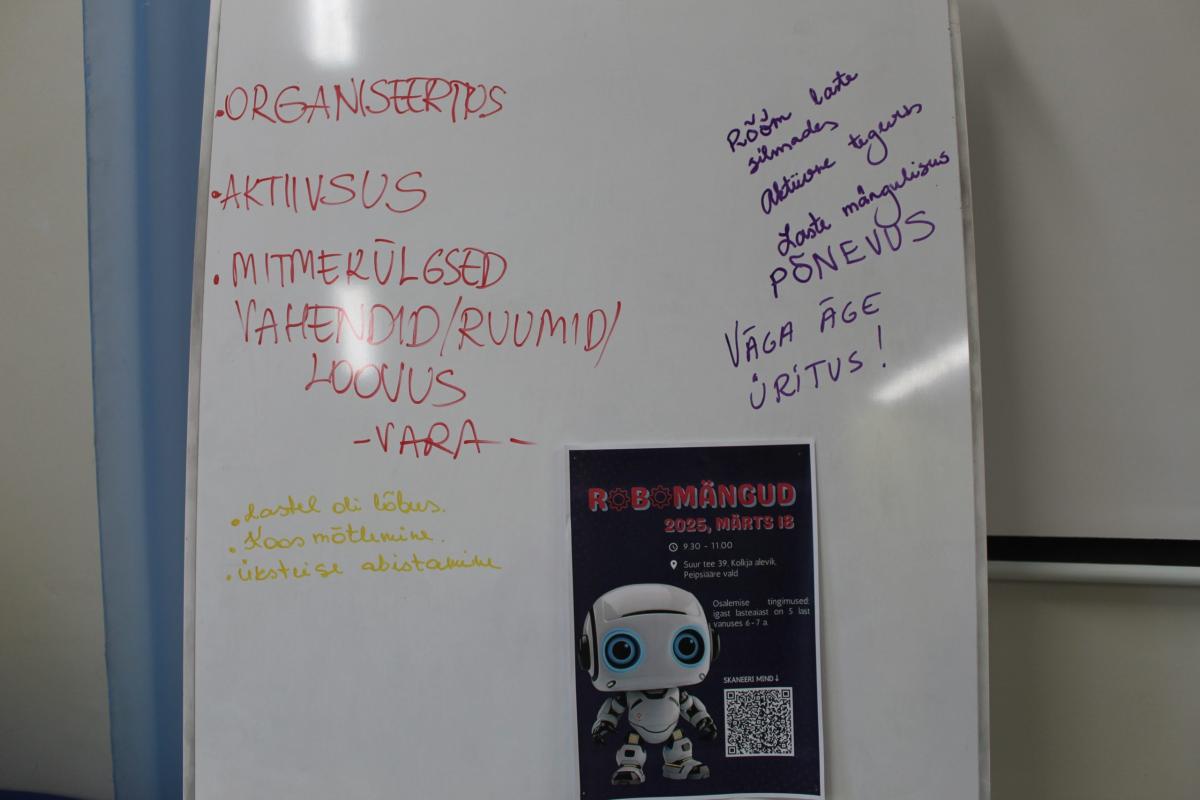 • ORGANISEERTUS
• AKTIIVSUS
• MITMEKÜLGSED
VAHENDID/RUUMID/
LOOVUS
- VARA -
• Lastel oli lõbus.
• Koos mõtlemine.
• üksteise abistamine
Rõõm laste
silmades
Aktiivne tegevus
Laste mängulisus
PÕNEVUS
VÄGA ÄGE
ÜRITUS!
ROBOMÄNGUD
2025, MÄRTS 18
9.30 - 11.00
Suur tee 39, Kolkja alevik,
Peipsiääre vald
Osalemise tingimused:
igast lasteaiast on 5 last
vanuses 6-7 a.
SKANEERI MIND↓